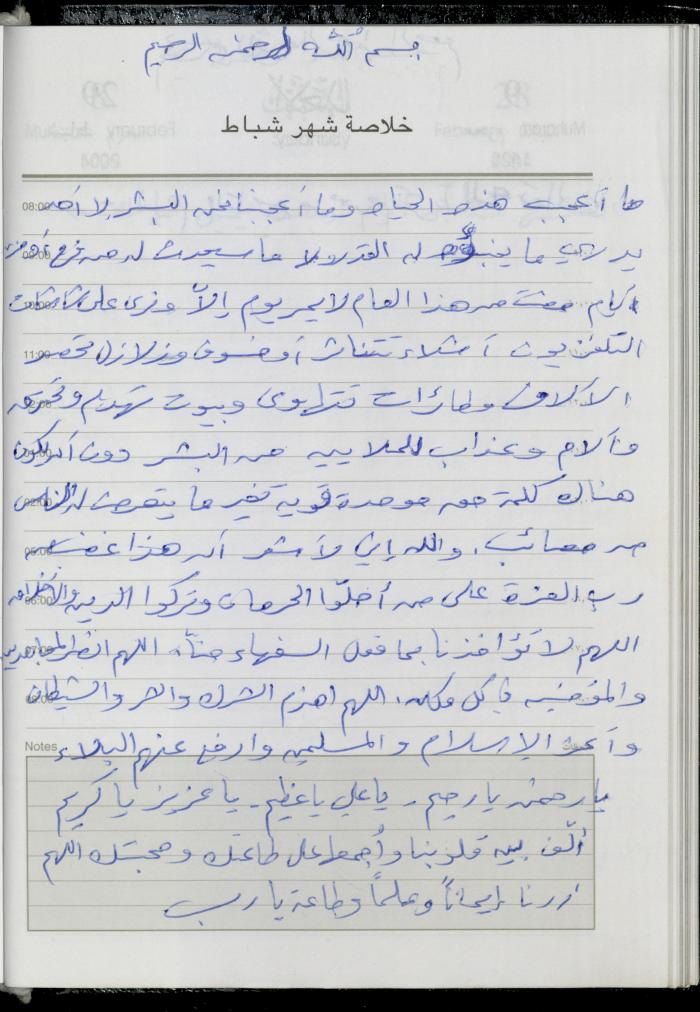 بسم الله الرحمن الرحيم
خلاصة شهر شباط
ما أعجب هذه الحياة وما أعجبنا نحن البشر لا أحد
08:00
يدري ما يخبئه له القدر ولا ما سيحدث له من فرح أو حزن
أيام مضت من هذا العام لا يمر يوم إلا ونرى على شاشات
التلفزيون أشلاء تتناثر أو خسوف وزلازل تحصد
11:00
الآلاف وطائرات تتهاوى وبيوت تهدم وتحرق
وآلام وعذاب للملايين من البشر دون أن يكون
هناك كلمة حق موحدة قوية تغير ما يتعرض له الناس
من مصائب، والله إني لأشعر أن هذا غضب من
05:00
رب العزة على من أحلّوا الحرمات وتركوا الدين والأخلاق
06:00
اللهم لا تؤاخذنا بما فعل السفهاء منّا، اللهم انصر المجاهدين
والمؤمنين في كل مكان، اللهم اهزم الشرك والشر والشيطان
وأعز الإسلام والمسلمين وارفع عنهم البلاء
Notes
يا رحمن يا رحيم - يا علي يا عظيم - يا عزيز يا كريم
ألّف بين قلوبنا وأجمعها على طاعتك ومحبتك اللهم
زدنا إيماناً وعلماً وطاعة يا رب